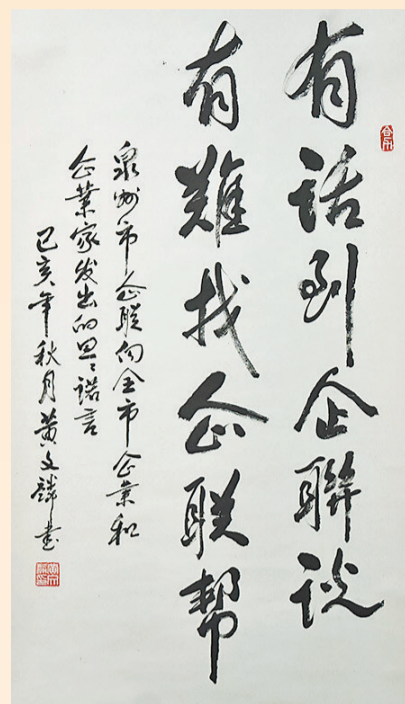 有话到企聯说
有難找企联帮
泉州市企联向全市企業和
企業家发出的诺言
己亥年秋月黄文麟書